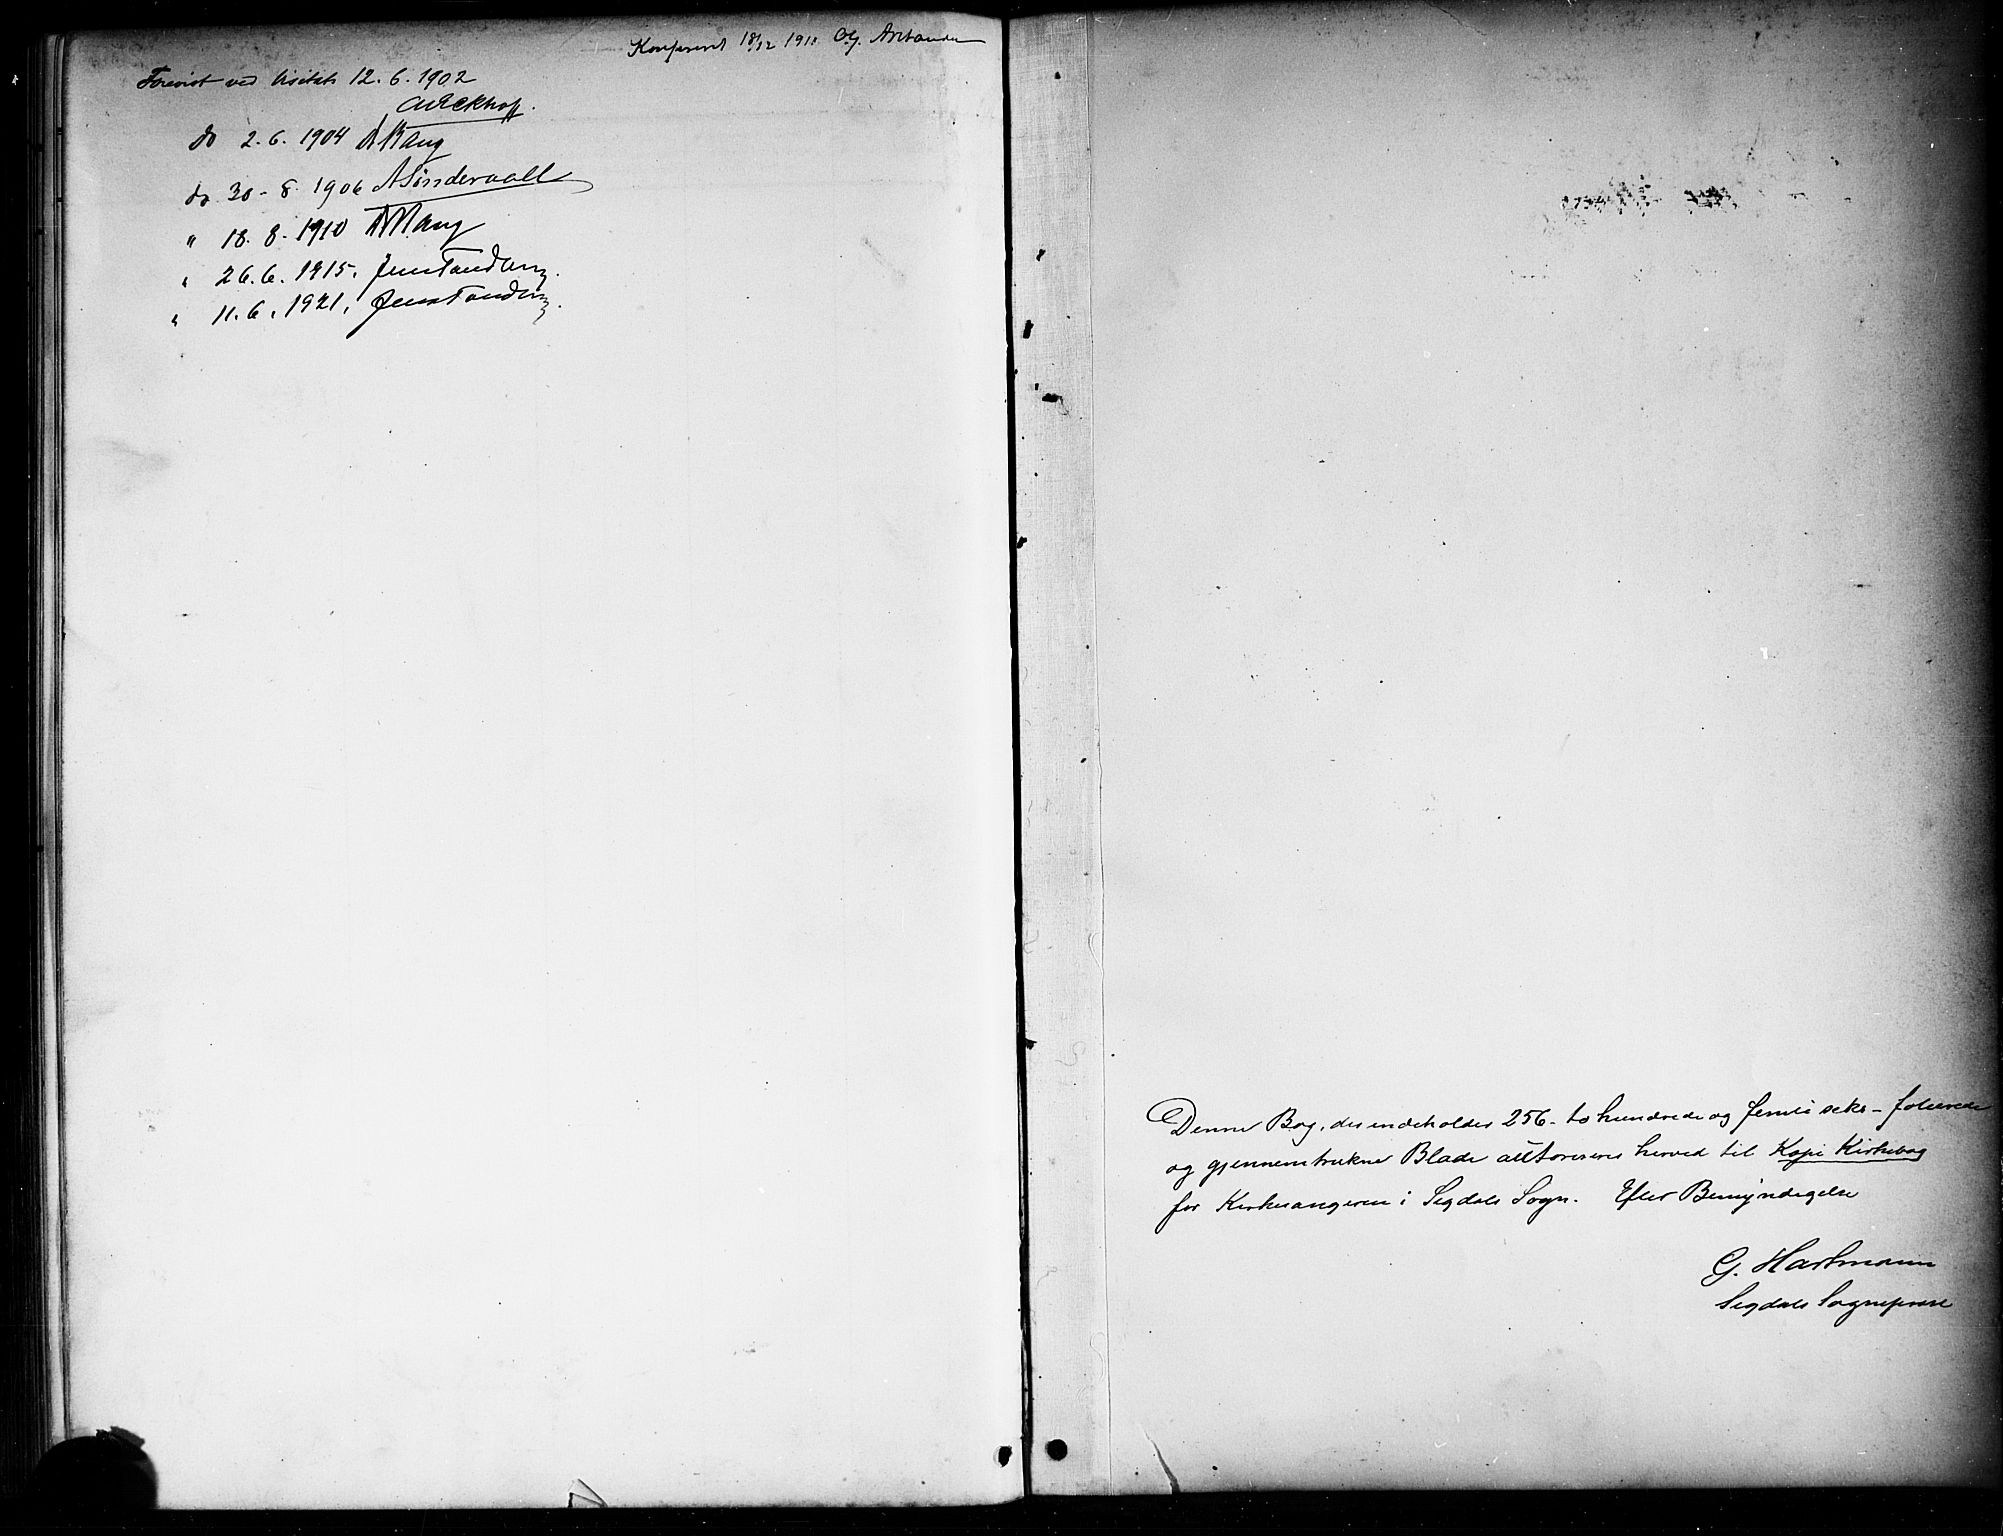 Konfereret 18/12 1911 Og.
Forevist ved Visitats 12. 6. 1902
Eckhoff.
do 2. 6. 1904 A Bang
do 30 - 8 1906 A Sinderaall
" 18. 8. 1910 A Bang
" 26. 6. 1915, Jens Tandberg.
" 11. 6. 1921, Jens Tandberg.
Denne Bog, der indeholder 256 - to hundrede og femti seks - folierede
og gjennemtrukne Blade auktoriseres herved til Kopi Kirkebog
for Kirkesangeren i Sigdals Sogn. Efter Bemyndigelse
G. Hartmann
Sigdals Sognepræst